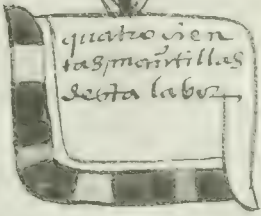 quatro çien
tas mantillas
desta labor